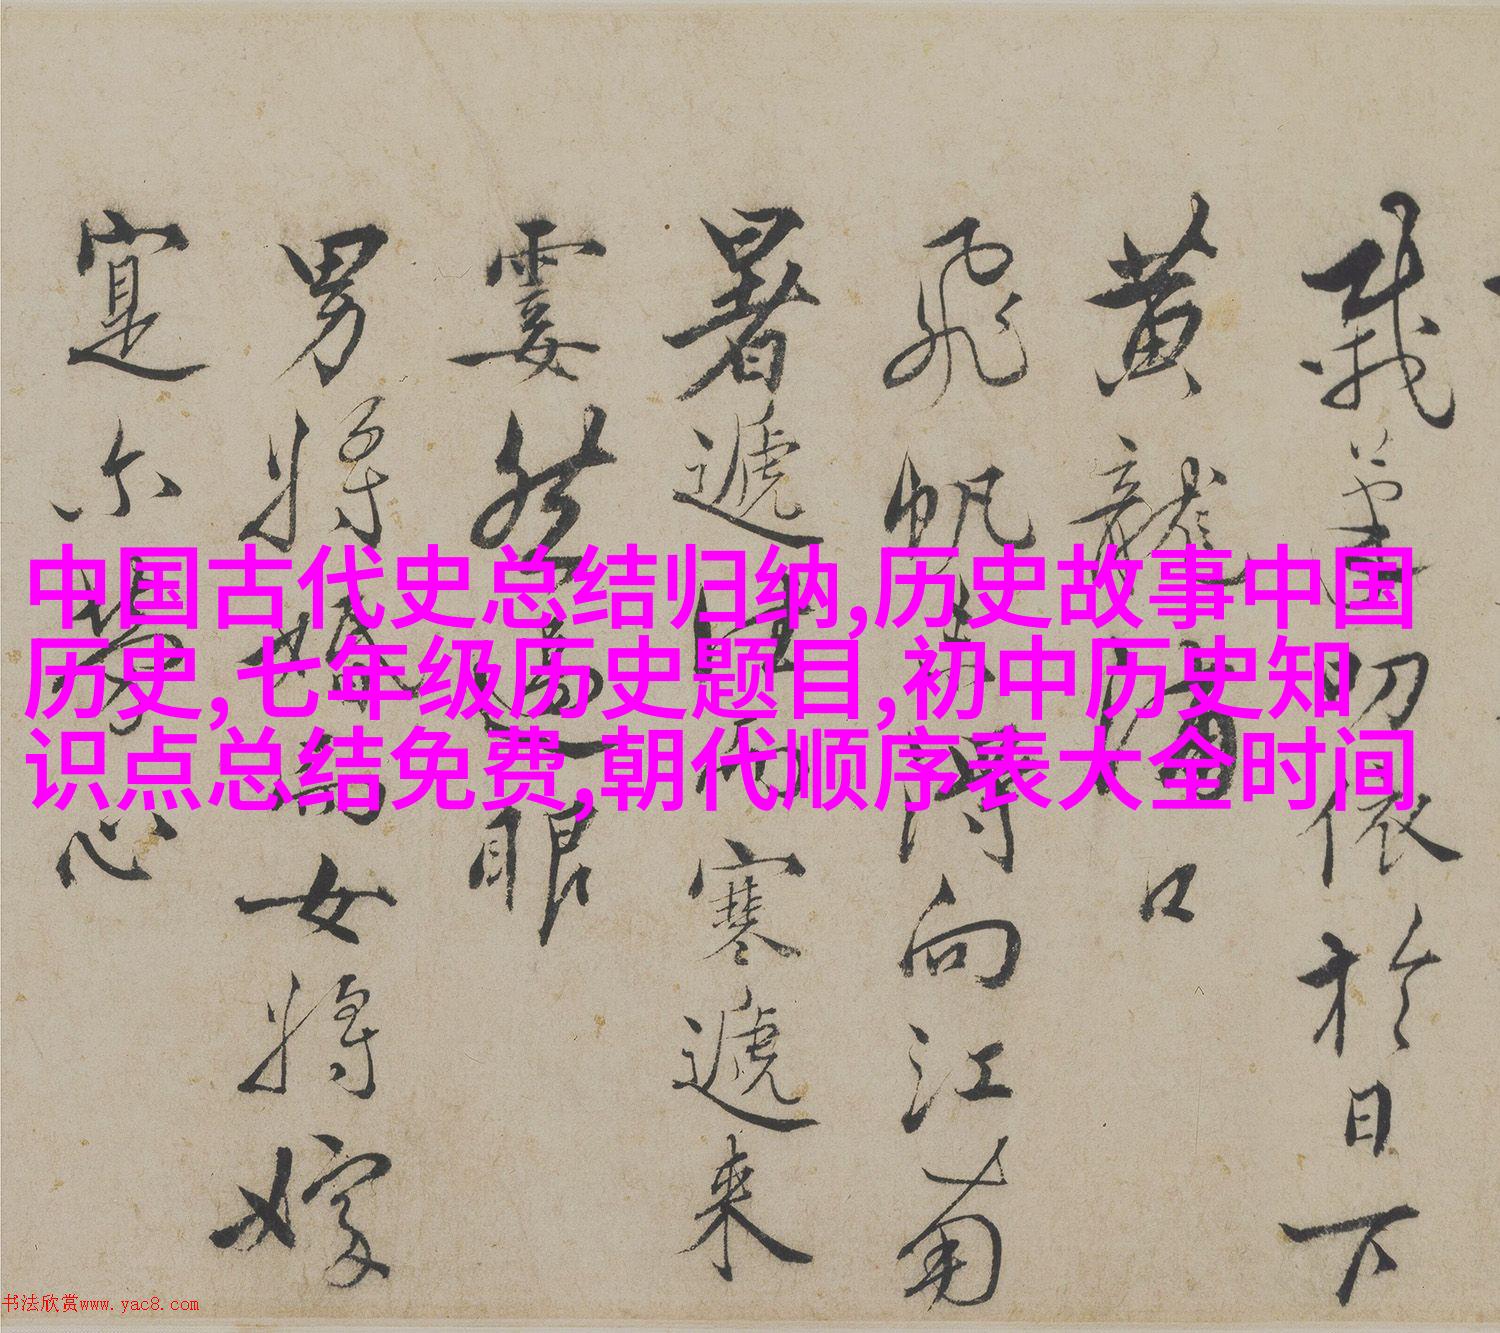 中国古代史总结归纳,历史故事中国
历史,七年级历史题目,初中历史知
识点总结免费,朝代顺序表大全时间
切依於日下
黄龍浦口
飛帆向江南
暑遞往而寒遞来
霎然過眼
男將婚而女將嫁
寔尔勞心
书法欣赏www.yac8.com